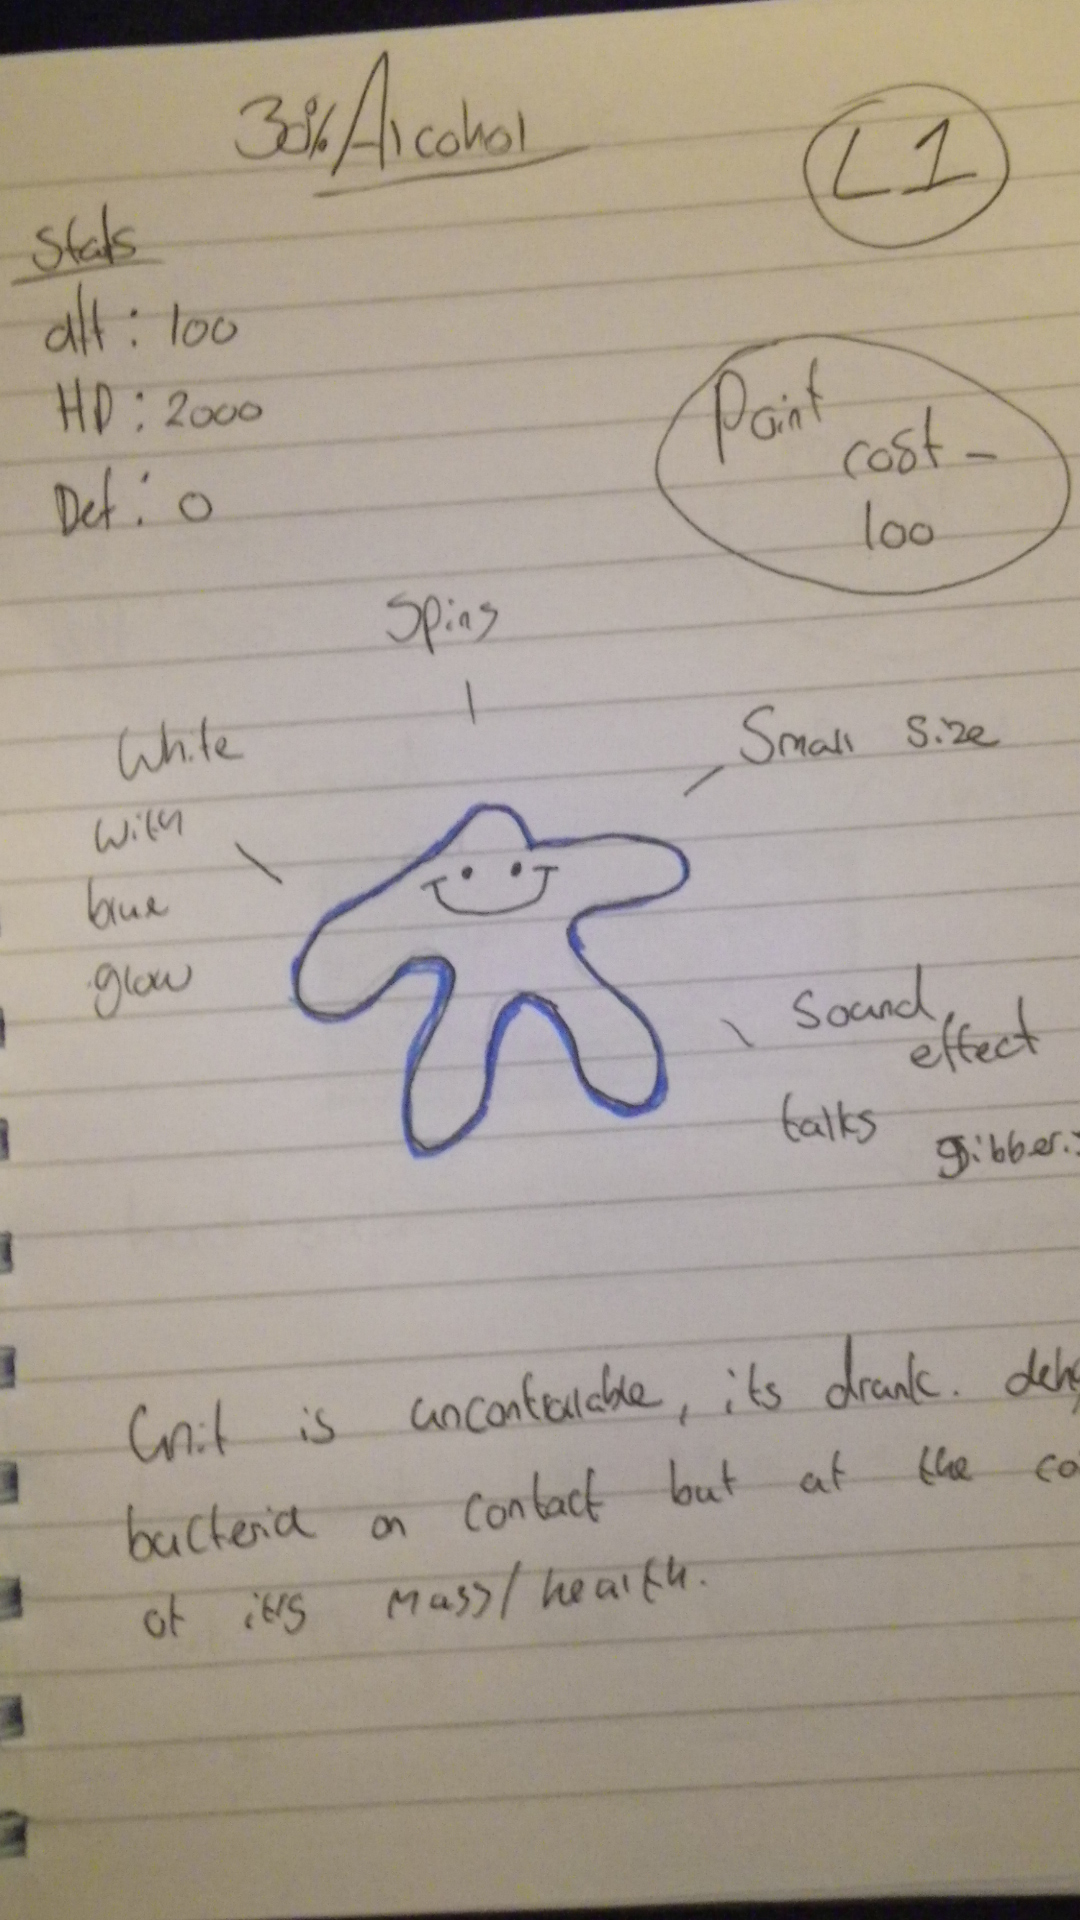 30% Alcohol
L1
Stats
att: 100
HP: 2000
Def: 0
Point
cost -
100
Spins
White
with
blue
glow
Small size
Sound
effect
talks
gibberis
Unit is uncontrollable, its drunk.
bacteria on contact but at the
of its mass/health.